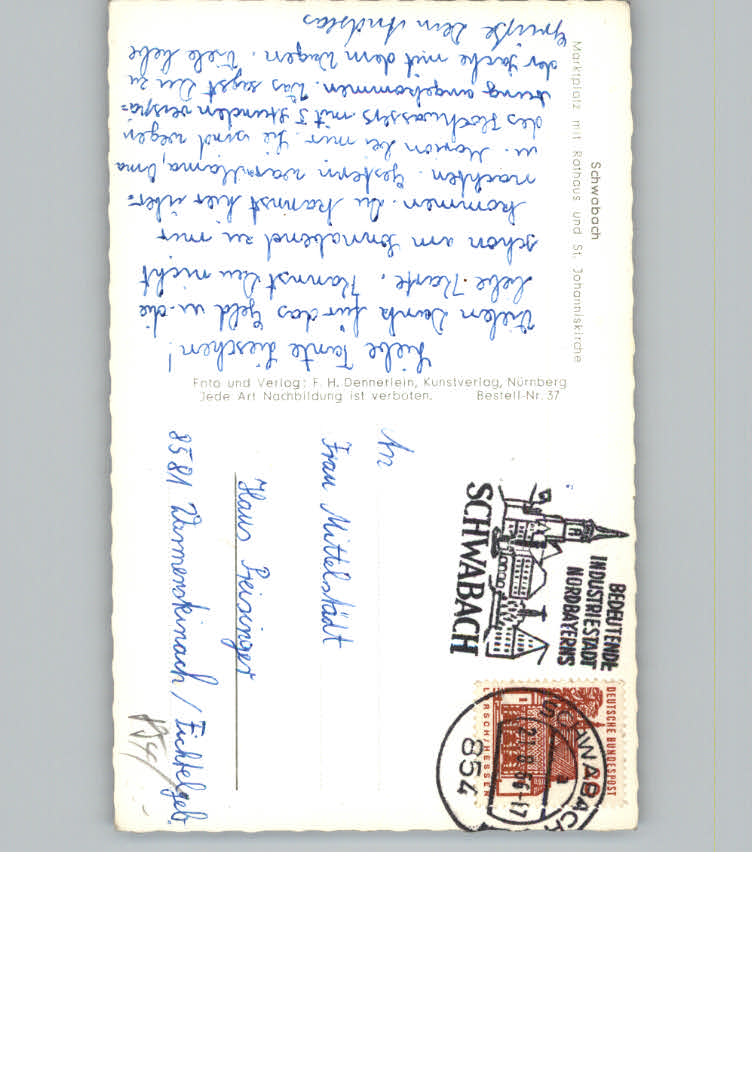 Schwabach
Marktplatz mit Rathaus und St. Johanniskirche
Liebe Tante Lieschen!
Vielen Dank für das Geld u. die
liebe Karte. Kannst Du nicht
schon am Sonnabend zu mir
kommen. Du kannst hier über-
nachten. Gestern war Mama, Oma
u. Marion bei mir. Sie sind wegen
des Hochwassers mit 5 Stunden verspä-
tung angekommen. Was sagst Du zu
der Sache mit dem Wagen. Viele liebe
Grüße Dein Andreas
Foto und Verlag: F. H. Dennerlein, Kunstverlag, Nürnberg
Jede Art Nachbildung ist verboten. Bestell-Nr. 37
BEDEUTENDE
INDUSTRIESTADT
NORDBAYERNS
SCHWABACH
DEUTSCHE BUNDESPOST
LORSCH/HESSEN
SCHWABACH
854
An
Frau Mittelstädt
Haus Preisinger
8581 Warmensteinach / Fichtelgeb.